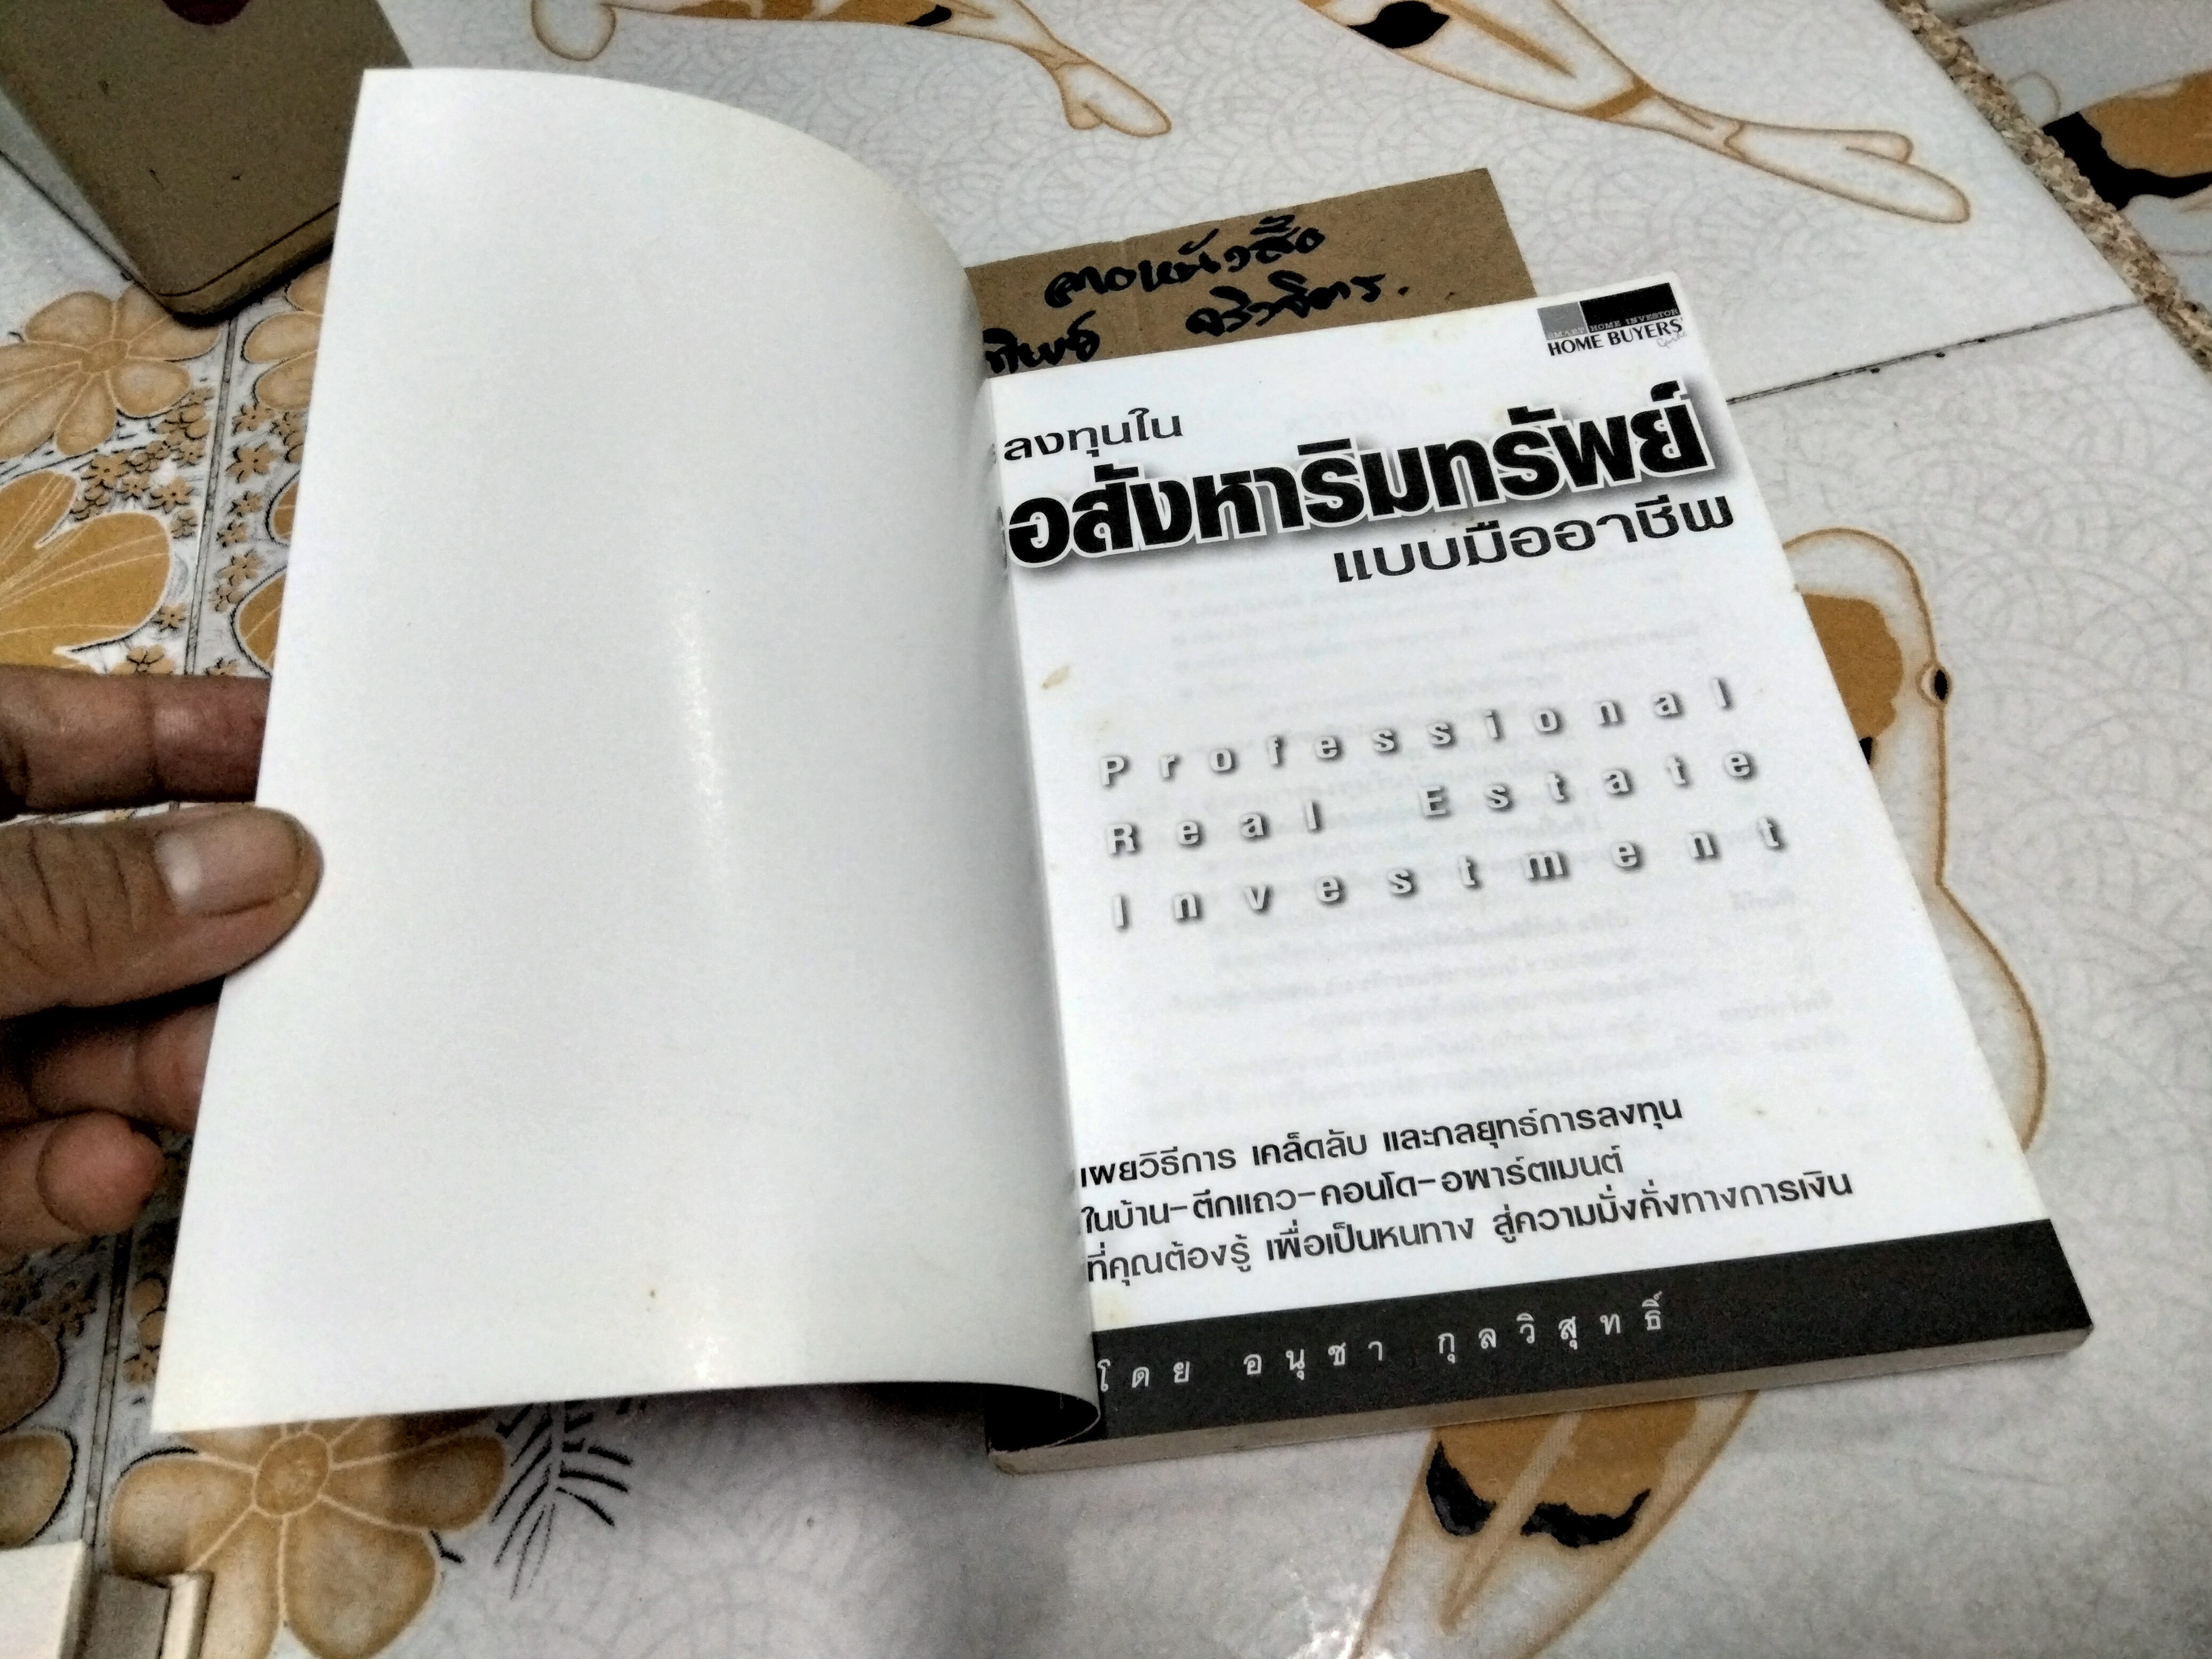 SMART HOME INVESTOR
HOME BUYERS'
Guide
ลงทุนใน
อสังหาริมทรัพย์
แบบมืออาชีพ
Professional
Real Estate
Investment
เผยวิธีการ เคล็ดลับ และกลยุทธ์การลงทุน
ในบ้าน-ตึกแถว-คอนโด-อพาร์ตเมนต์
ที่คุณต้องรู้ เพื่อเป็นหนทาง สู่ความมั่งคั่งทางการเงิน
โดย อนุชา กุลวิสุทธิ์